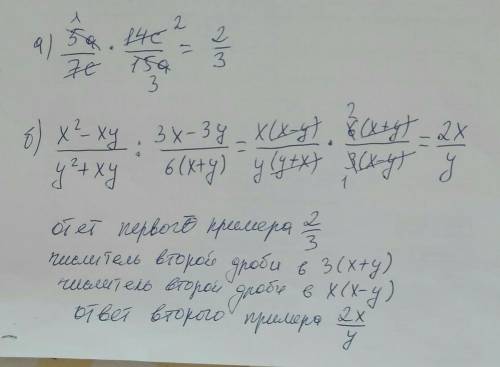 а) 5a/7c · 14c/15a = 2/3
1 2 3
б) x² - xy / y² + xy : 3x - 3y / 6(x+y) = x(x-y) / y(y+x) · 6(x+y) / 3(x-y) = 2x/y
2 1
ответ первого примера 2/3
числитель второй дроби в 3(x+y)
числитель второй дроби в x(x-y)
ответ второго примера 2x/y